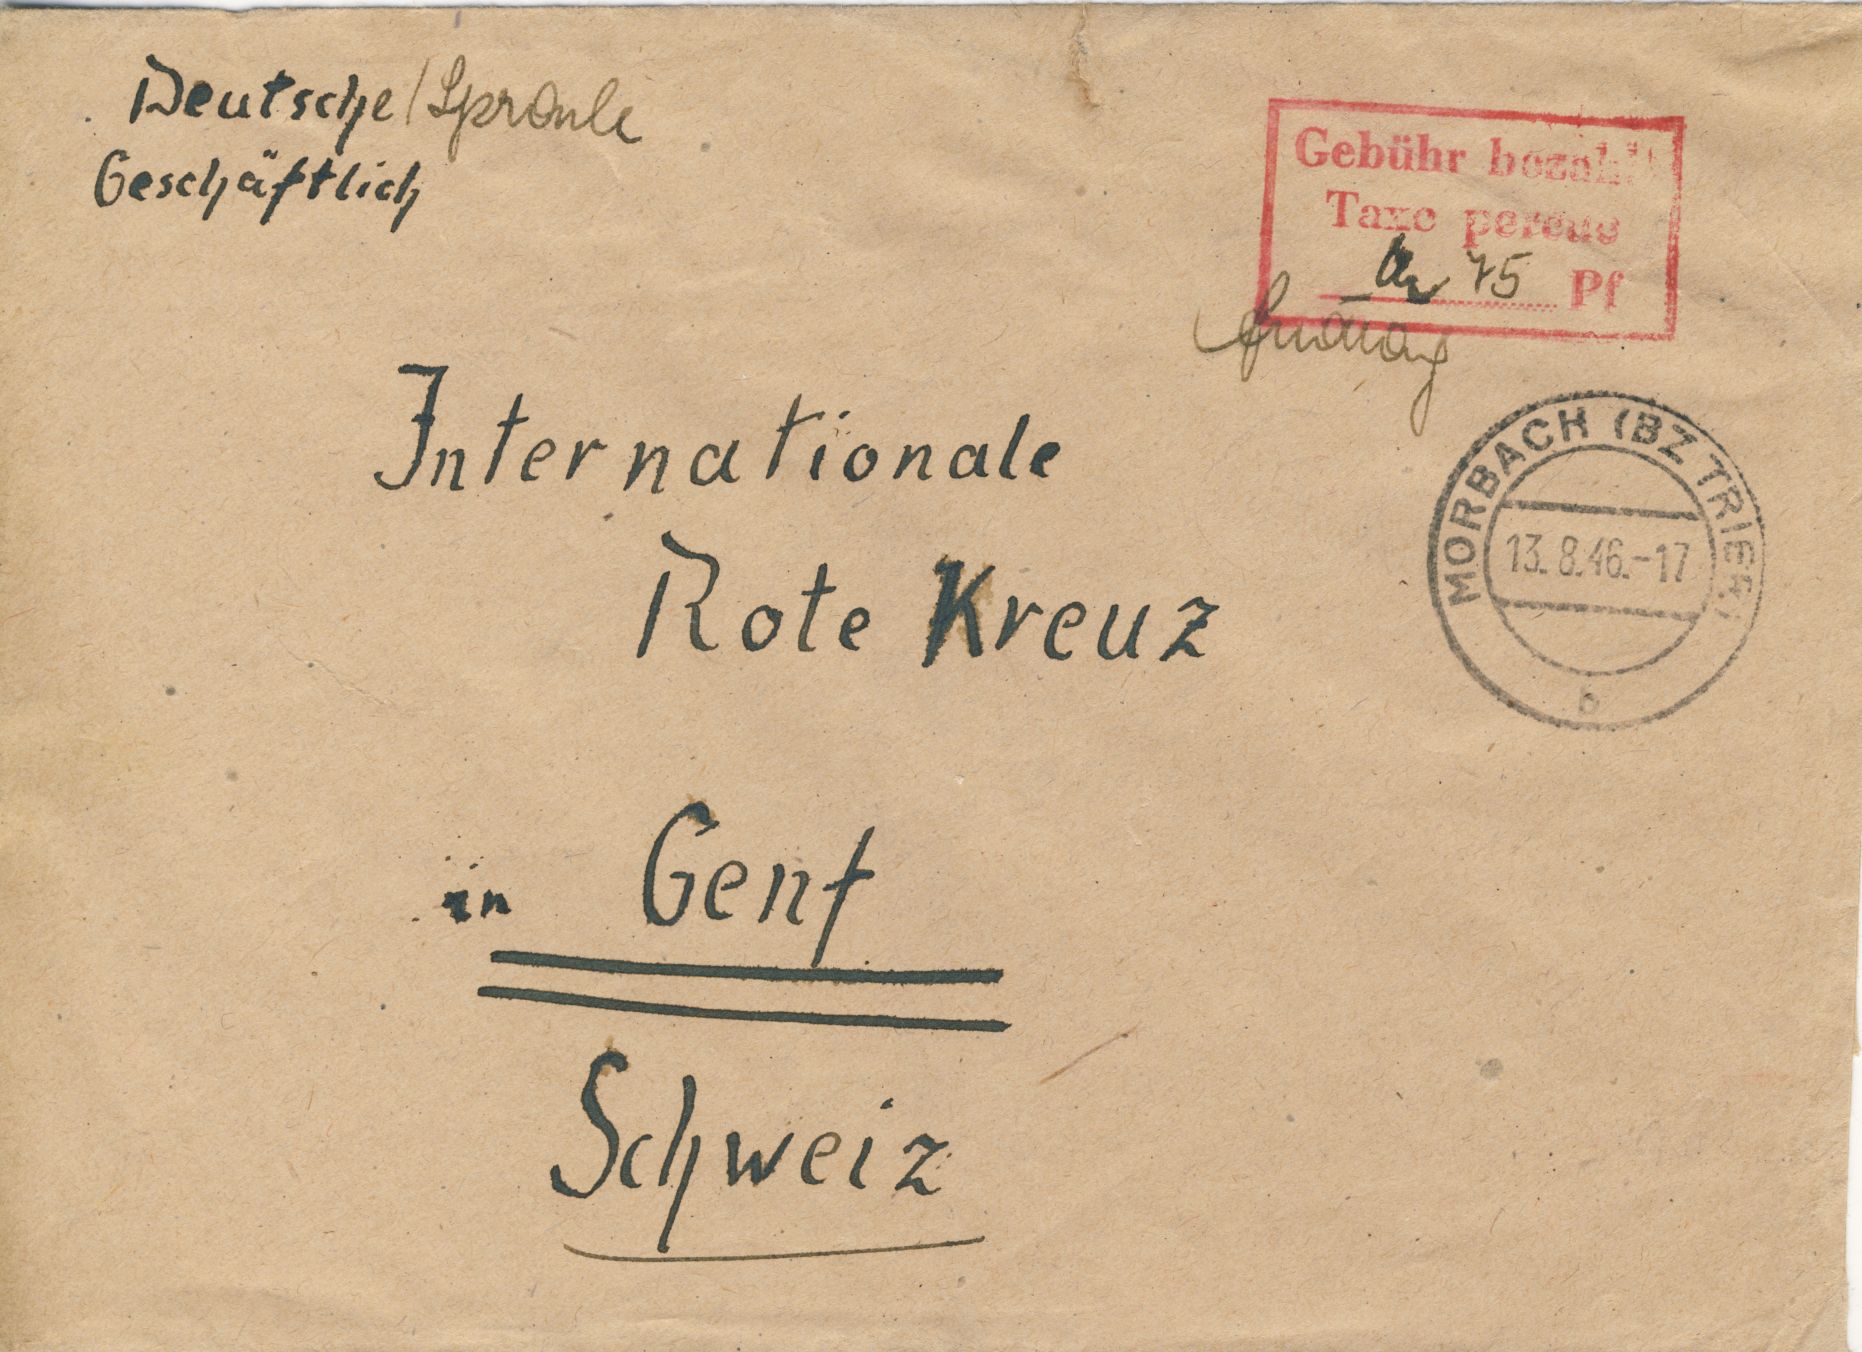 Deutsche / Sprache
Geschäftlich
Gebühr bezahlt
Taxe percue
75 Pf
Internationale
Rote Kreuz
in Genf
Schweiz
MORBACH (BZ TRIER)
13.8.46.-17
b